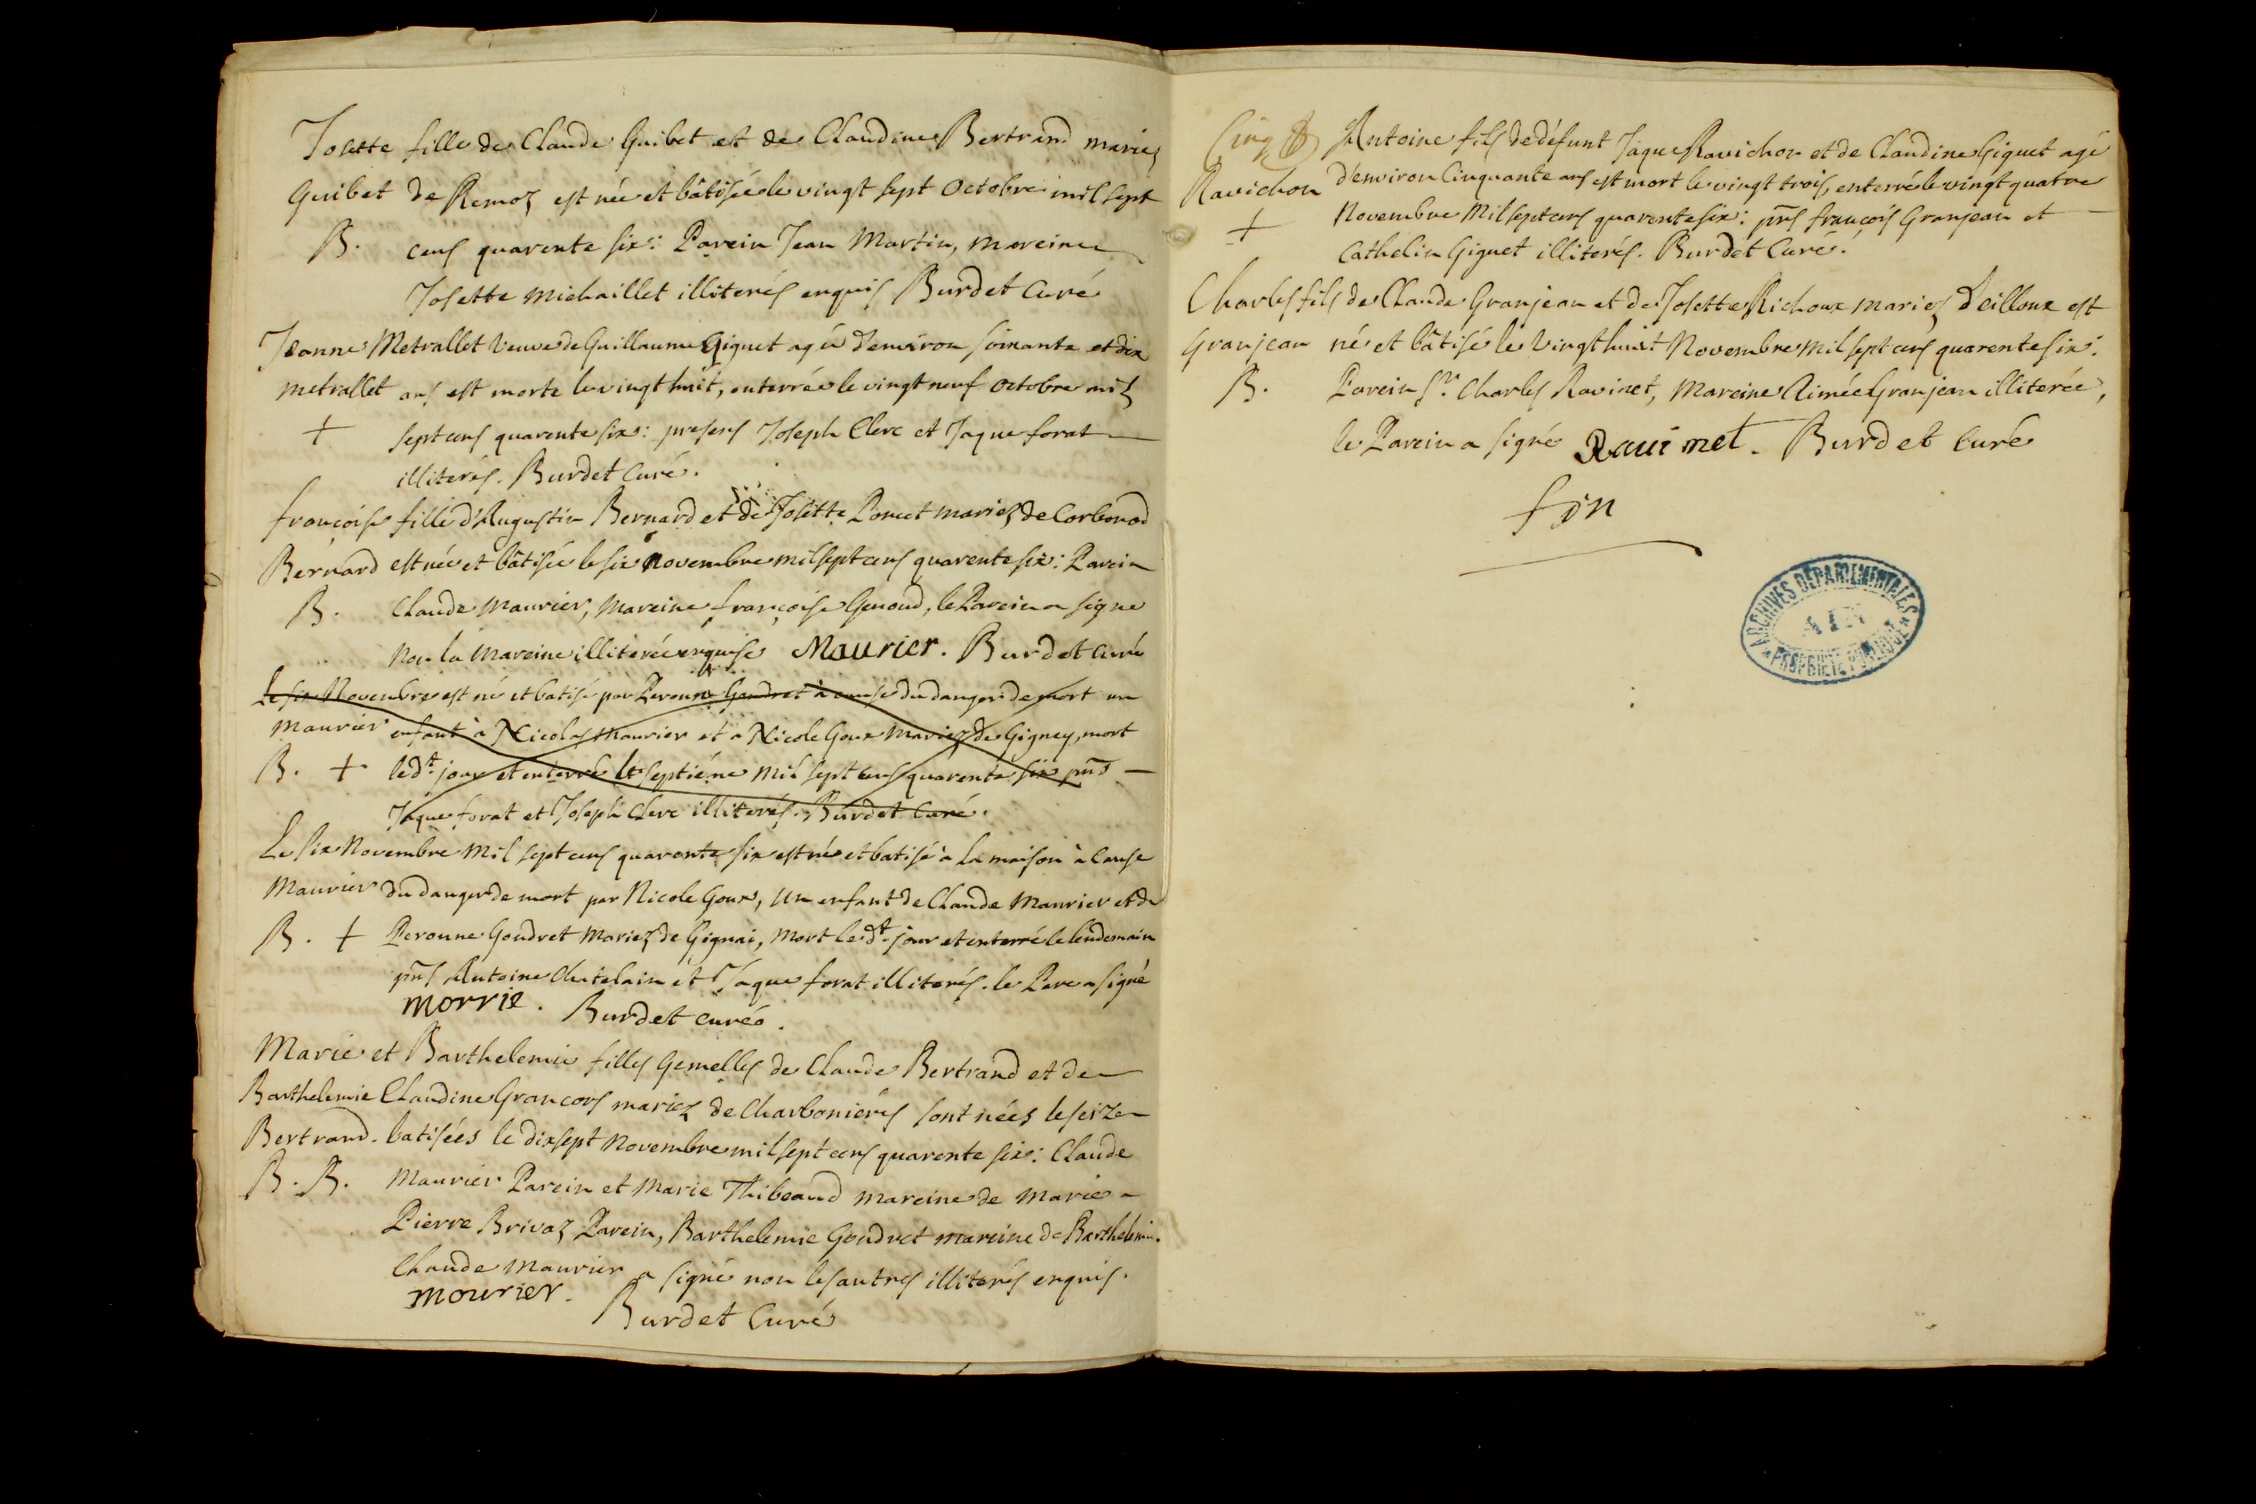 Josette fille de Claude Guibet et de Claudine Bertrand mariez
Guibet de Remoz est née et bâtisée le vingt sept Octobre mil sept
B. cens quarente six: Parein Jean Martin, Mareine
Josette Michaillet illiterés enquis Burdet Curé
Jeanne Metrallet Veuve de Guillaume Giguet agée d'environ soixante et dix
Metrallet ans est morte le vingt huit, enterrée le vingt neuf Octobre mil
+ sept cens quarente six: presens Joseph Clerc et Jaque forat
illiterés. Burdet Curé.
françoise fille d'Augustin Bernard et de Josette Poncet mariez de Corbonod
Bernard est née et bâtisée le six Novembre mil sept cens quarente six: Parein
B. Claude Maurier, Mareine françoise Genoud, le Parein a signe
Non la Mareine illiterée enquise Maurier. Burdet Curé
Le six Novembre est né et batisé par Peroune Goudret à cause du danger de mort un
Maurier enfant à Nicolas Maurier et à Nicole Goux Mariez de Gigney, mort
B. + led.t jour et enterré le septiéme Mil sept cens quarente six pñs
Jaque forat et Joseph Clerc illiterés. Burdet Curé.
Le six Novembre Mil sept cens quarente six est né et batisé à la maison à cause
Maurier du danger de mort par Nicole Goux, Un enfant de Claude Maurier et de
B. + Peroune Goudret Mariez de Gignai, Mort le d.t jour et enterré le lendemain
pñs Antoine Chatelain et Jaque forat illiterés. le Pere a signé
morrie. Burdet curé.
Marie et Barthelemie filles Gemelles de Claude Bertrand et de
Barthelemie Claudine Grancors mariez de Charboniéres sont nées le seize
Bertrand. batisées le dixsept Novembre mil sept cens quarente six: Claude
B. B. Maurier Parein et Marie Thibeaud mareine de Marie
Pierre Brivaz Parein, Barthelemie Goudret mareine de Barthelemie.
Claude Maurier a signé non les autres illiterés enquis.
mourier. Burdet Curé
Cinq
Antoine fils de défunt Jaque Ravichon et de Claudine Giguet agé
Ravichon d'environ Cinquante ans est mort le vingt trois, enterré le vingt quatre
+ Novembre Mil sept cens quarente six: pñs françois Granjean et
Cathelin Giguet illiterés. Burdet Curé.
Charles fils de Claude Granjean et de Josette Richoux mariez d'eilloux est
Granjean né et bâtisé le Vingt huit Novembre Mil sept cens quarente six:
B. Parein S.r Charles Ravinet, Mareine Aimée Granjean illiterée,
le Parein a signé Rauinet. Burdet Curé
fin
ARCHIVES DÉPARTEMENTALES
AIN
PROPRIÉTÉ PUBLIQUE